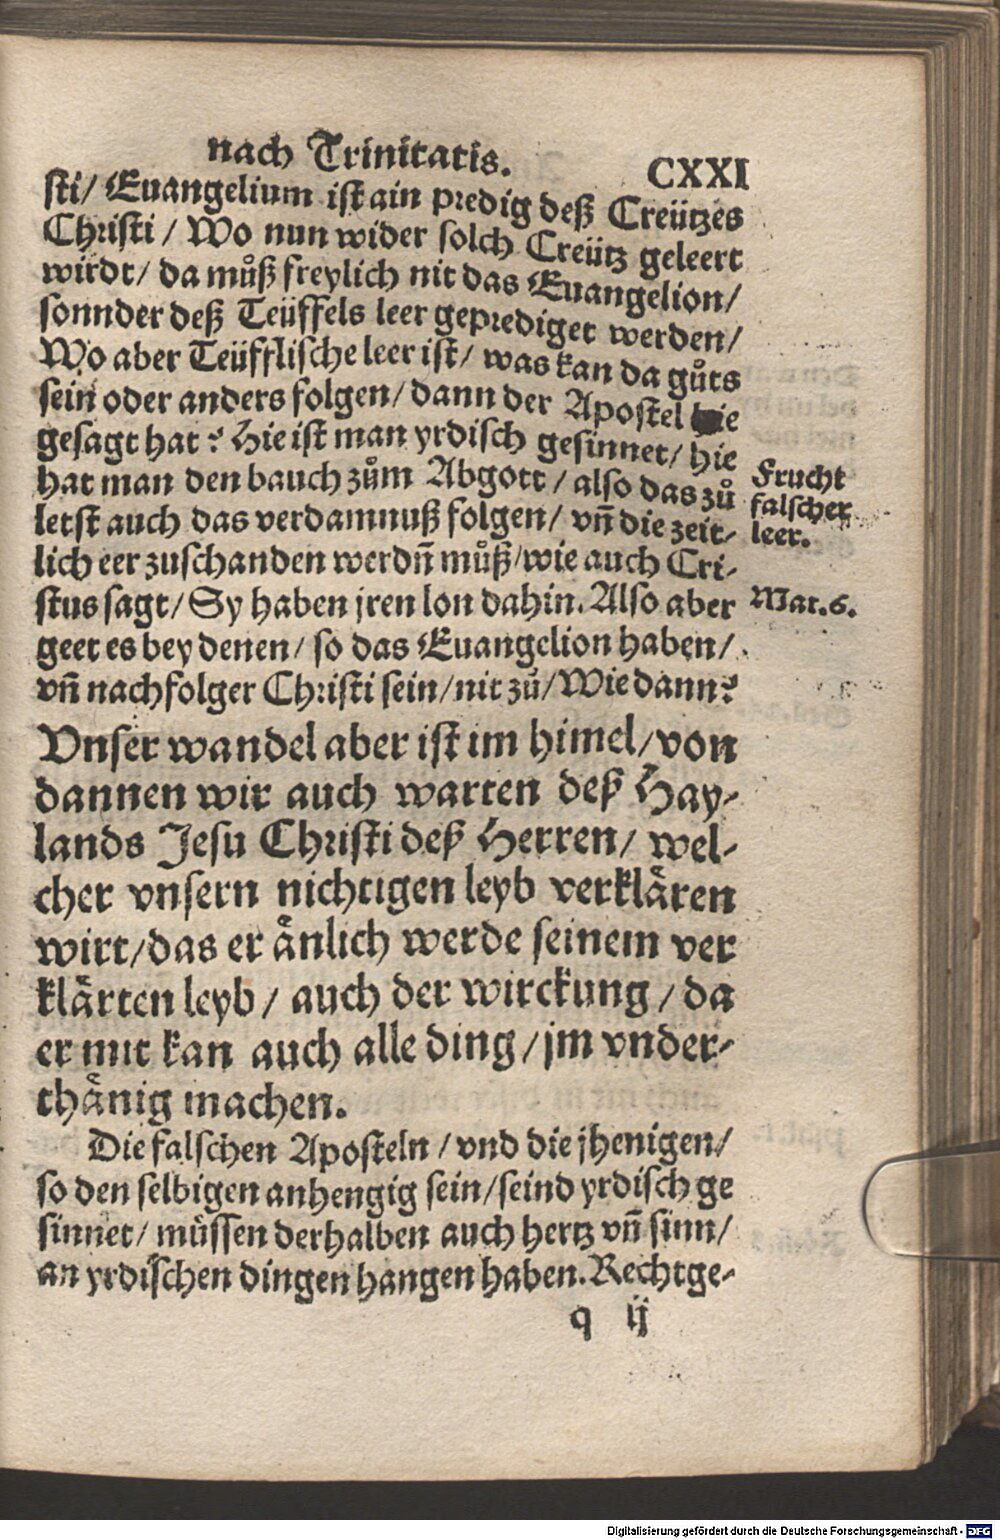 nach Trinitatis.
CXXI
sti/ Euangelium ist ain predig deß Creützes
Christi / Wo nun wider solch Creütz geleert
wirdt/ da můß freylich nit das Euangelion/
sonnder deß Teüffels leer geprediget werden/
Wo aber Teüfflische leer ist/ was kan da gůts
sein oder anders folgen/ dann der Apostel hie
gesagt hat? Hie ist man yrdisch gesinnet/ hie
hat man den bauch zům Abgott / also das zů
letst auch das verdamnuß folgen/ vñ die zeit-
lich eer zuschanden werdñ můß/wie auch Cri-
stus sagt/ Sy haben jren lon dahin. Also aber
geet es bey denen/ so das Euangelion haben/
vñ nachfolger Christi sein/nit zů/Wie dann?
Frucht
falscher
leer.
Mat.6.
Vnser wandel aber ist im himel/von
dannen wir auch warten deß Hay-
lands Jesu Christi deß Herren/ wel-
cher vnsern nichtigen leyb verklåren
wirt/das er ånlich werde seinem ver
klårten leyb/ auch der wirckung /da
er mit kan auch alle ding /jm vnder-
thånig machen.
Die falschen Aposteln /vnd die jhenigen/
so den selbigen anhengig sein/seind yrdisch ge
sinnet/ müssen derhalben auch hertz vñ sinn/
an yrdischen dingen hangen haben. Rechtge-
q ij
Digitalisierung gefördert durch die Deutsche Forschungsgemeinschaft - DFG